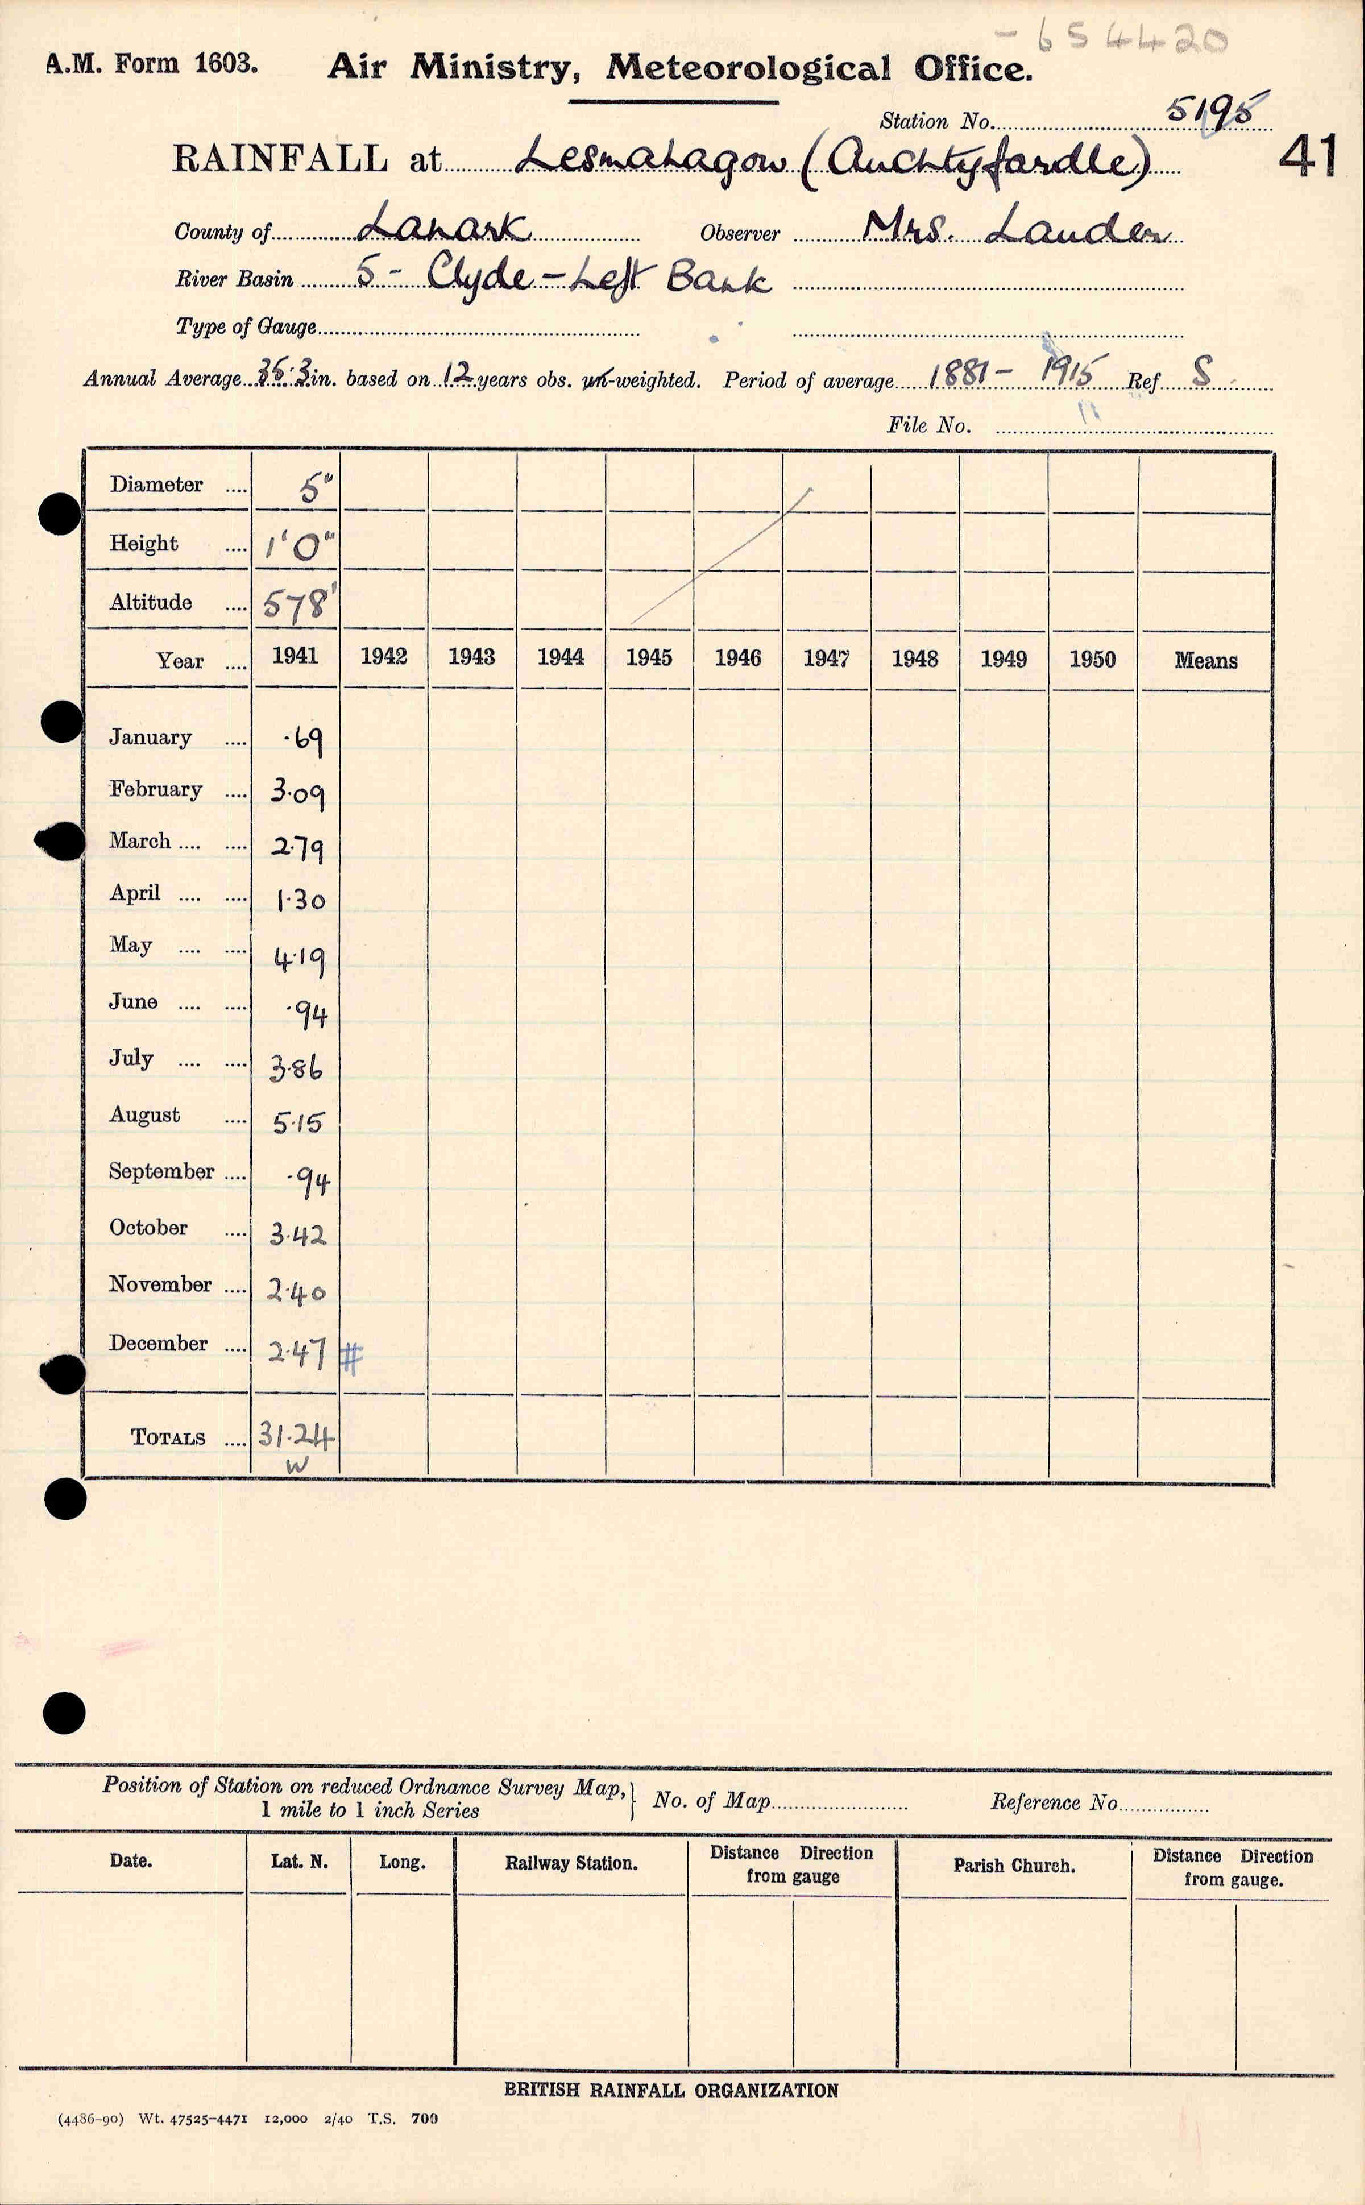 - 654420
A.M. Form 1603. Air Ministry, Meteorological Office.
Station No. 5195
RAINFALL at Lesmahagow (Auchtyfardle) 41
County of Lanark Observer Mrs. Lauder
River Basin 5 - Clyde - Left Bank
Type of Gauge
Annual Average 35.3 in. based on 12 years obs. un-weighted. Period of average 1881 - 1915 Ref S.
File No.
Diameter .... 5"
Height .... 1'0"
Altitude .... 578'
Year .... 1941 1942 1943 1944 1945 1946 1947 1948 1949 1950 Means
January .... ·69
February .... 3·09
March .... .... 2·79
April .... .... 1·30
May .... .... 4·19
June .... .... ·94
July .... .... 3·86
August .... 5·15
September .... ·94
October .... 3·42
November .... 2·40
December .... 2·47 #
TOTALS .... 31·24
W
Position of Station on reduced Ordnance Survey Map, } No. of Map Reference No
1 mile to 1 inch Series
Date. Lat. N. Long. Railway Station. Distance Direction from gauge Parish Church. Distance Direction from gauge.
BRITISH RAINFALL ORGANIZATION
(4486-90) Wt. 47525-4471 12,000 2/40 T.S. 700